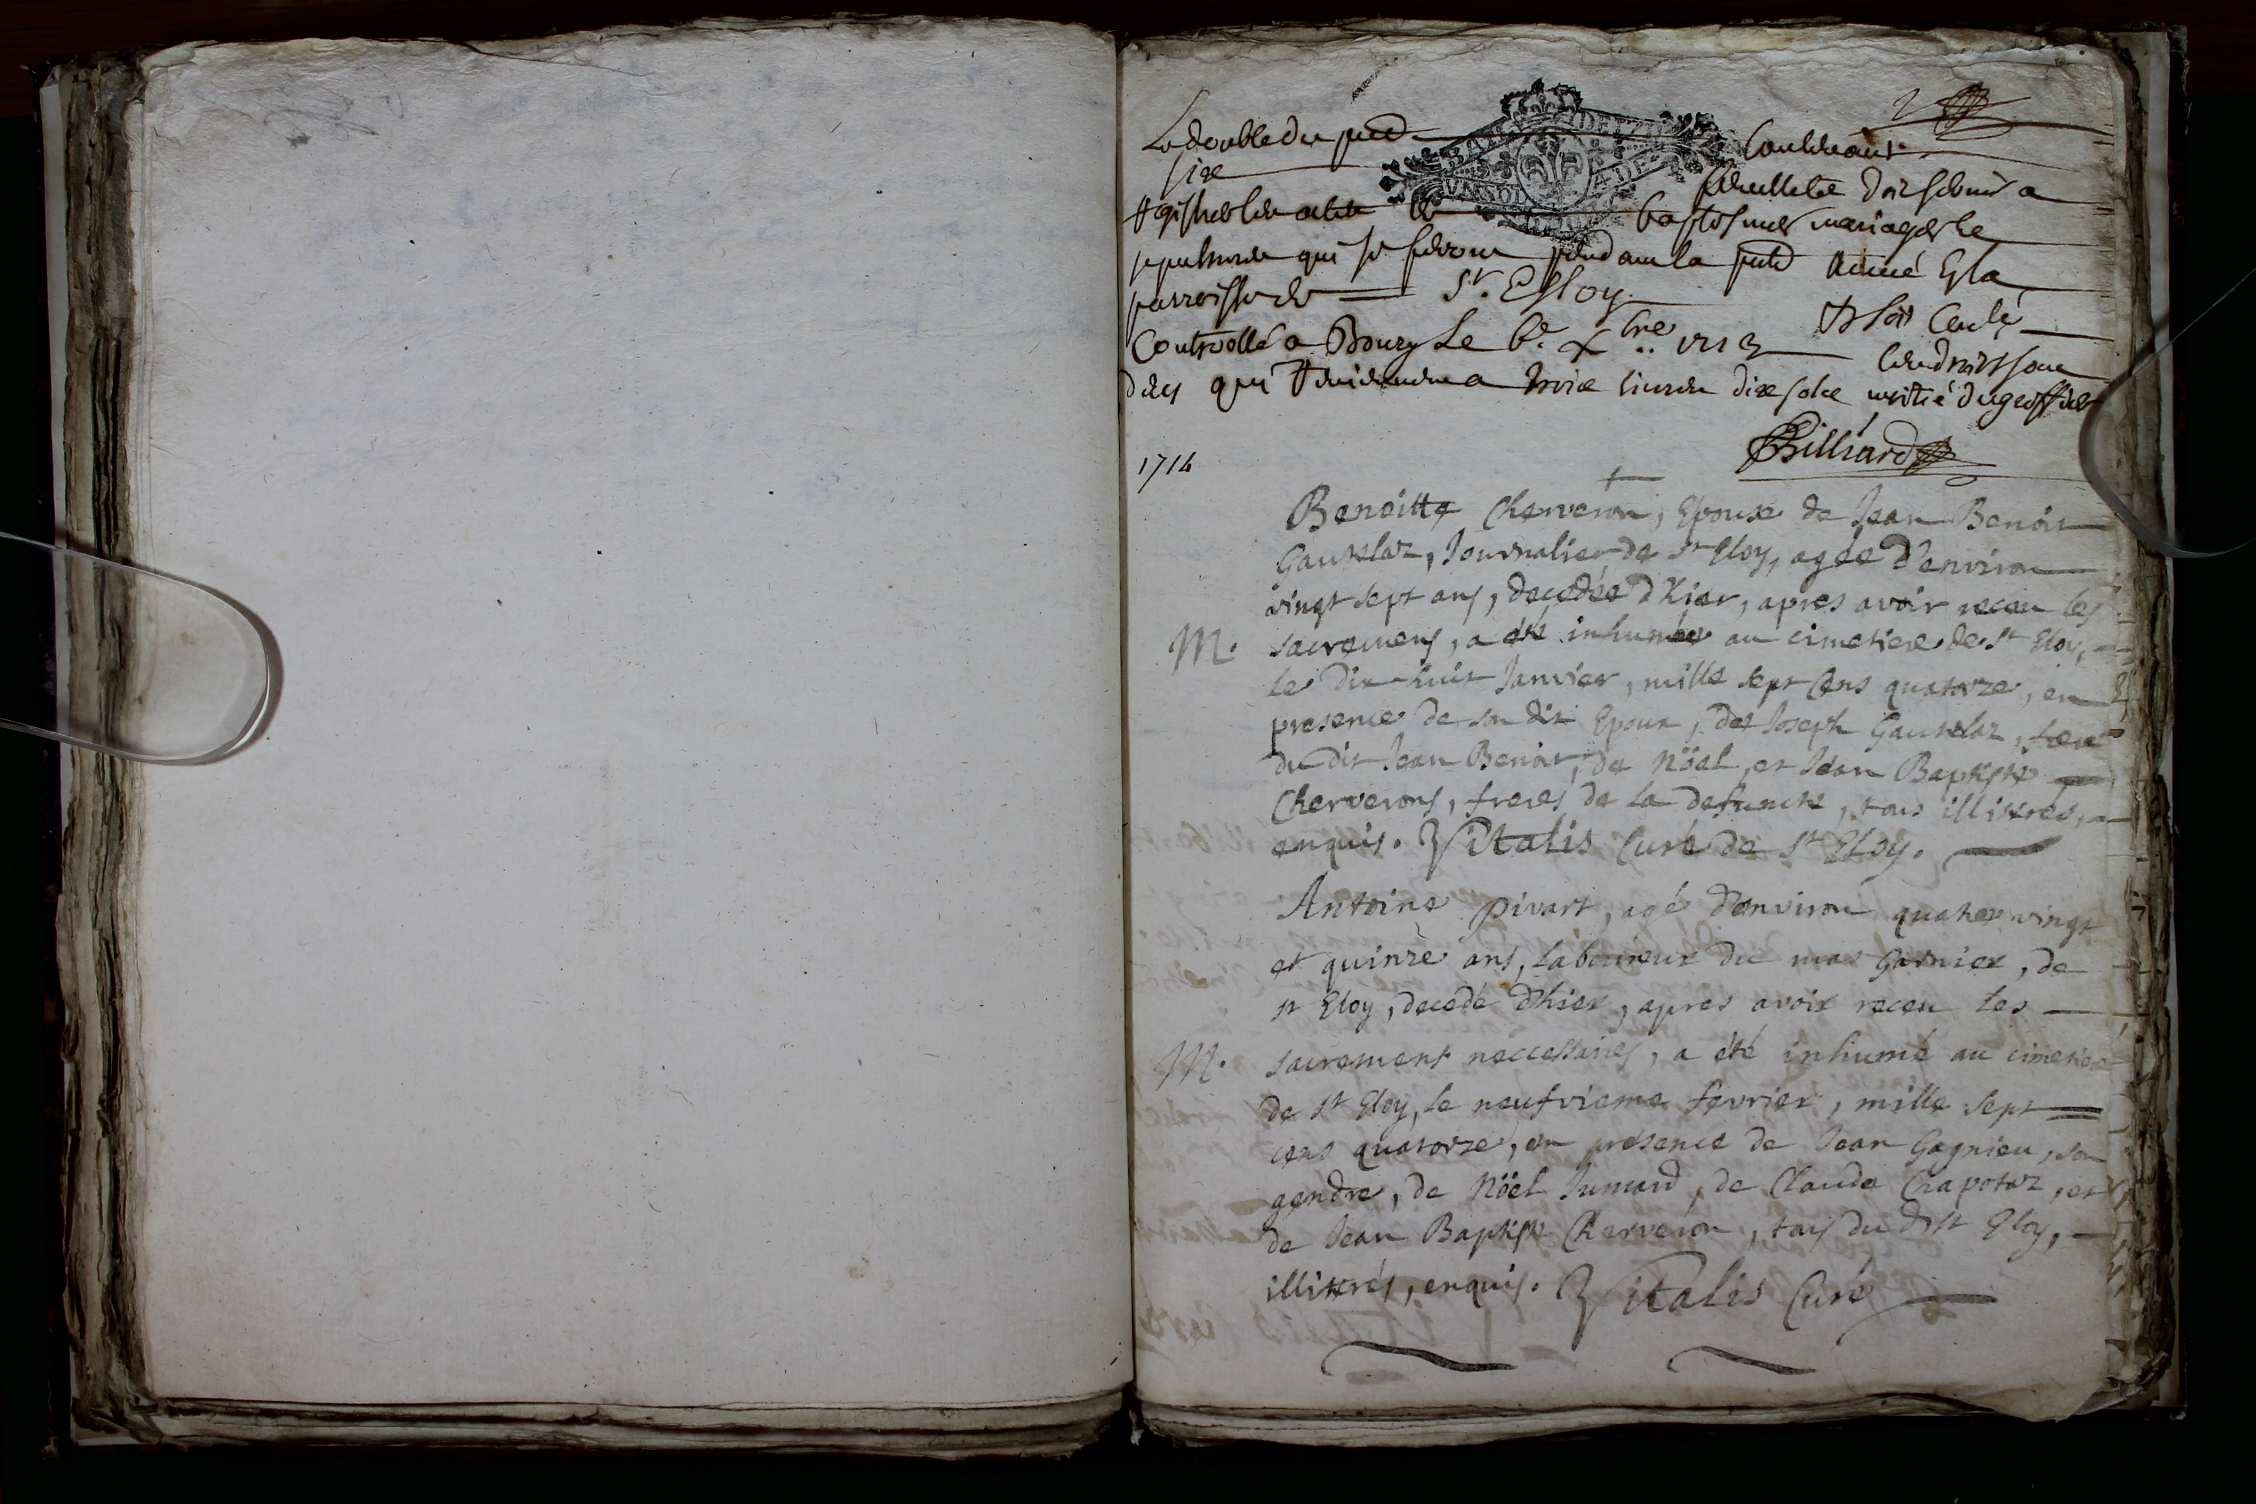 Le double du pnt Contenant
six feuillets doit servir a
Registrer les actes de baptesmes mariages et
sepultures qui se feront pendant la pnte année En la
parroisse de St. Esloy
Controllé a Bourg Le 6e Xbre 1713
dixs qui Reviennent a trois livres dix sols moitié du greffier
Billiard
1714
Benoitte Cherveron, Epouse de Jean Benoit
Gautelat, Journalier de St Eloy, agée d'environ
vingt sept ans, decedée d'hier, apres avoir receu les
M. sacremens, a été inhumée au cimetiere de St Eloy,
le dix-huit Janvier, mille sept Cens quatorze, en
presence de son dit Epoux, de Joseph Gautelat, frere
du dit Jean Benoit, de Nöel, et Jean Baptiste
Cherverons, freres de la defuncte, tous illitrés,
enquis. Vitalis Curé de St Eloy.
Antoine Pivart, agé d'environ quatre vingt
et quinze ans, laboureur du mas Garnier, de
St Eloy, decedé d'hier, apres avoir receu les
M. sacremens neccessaires, a été inhumé au cimetiere
de St Eloy, le neufvieme fevrier, mille sept
cens quatorze, en presence de Jean Gagnieu, son
gendre, de Nöel Jumard, de Claude Chapotat, et
de Jean Baptiste Cherveron, tous du dit St Eloy,
illitrés, enquis. Vitalis Curé